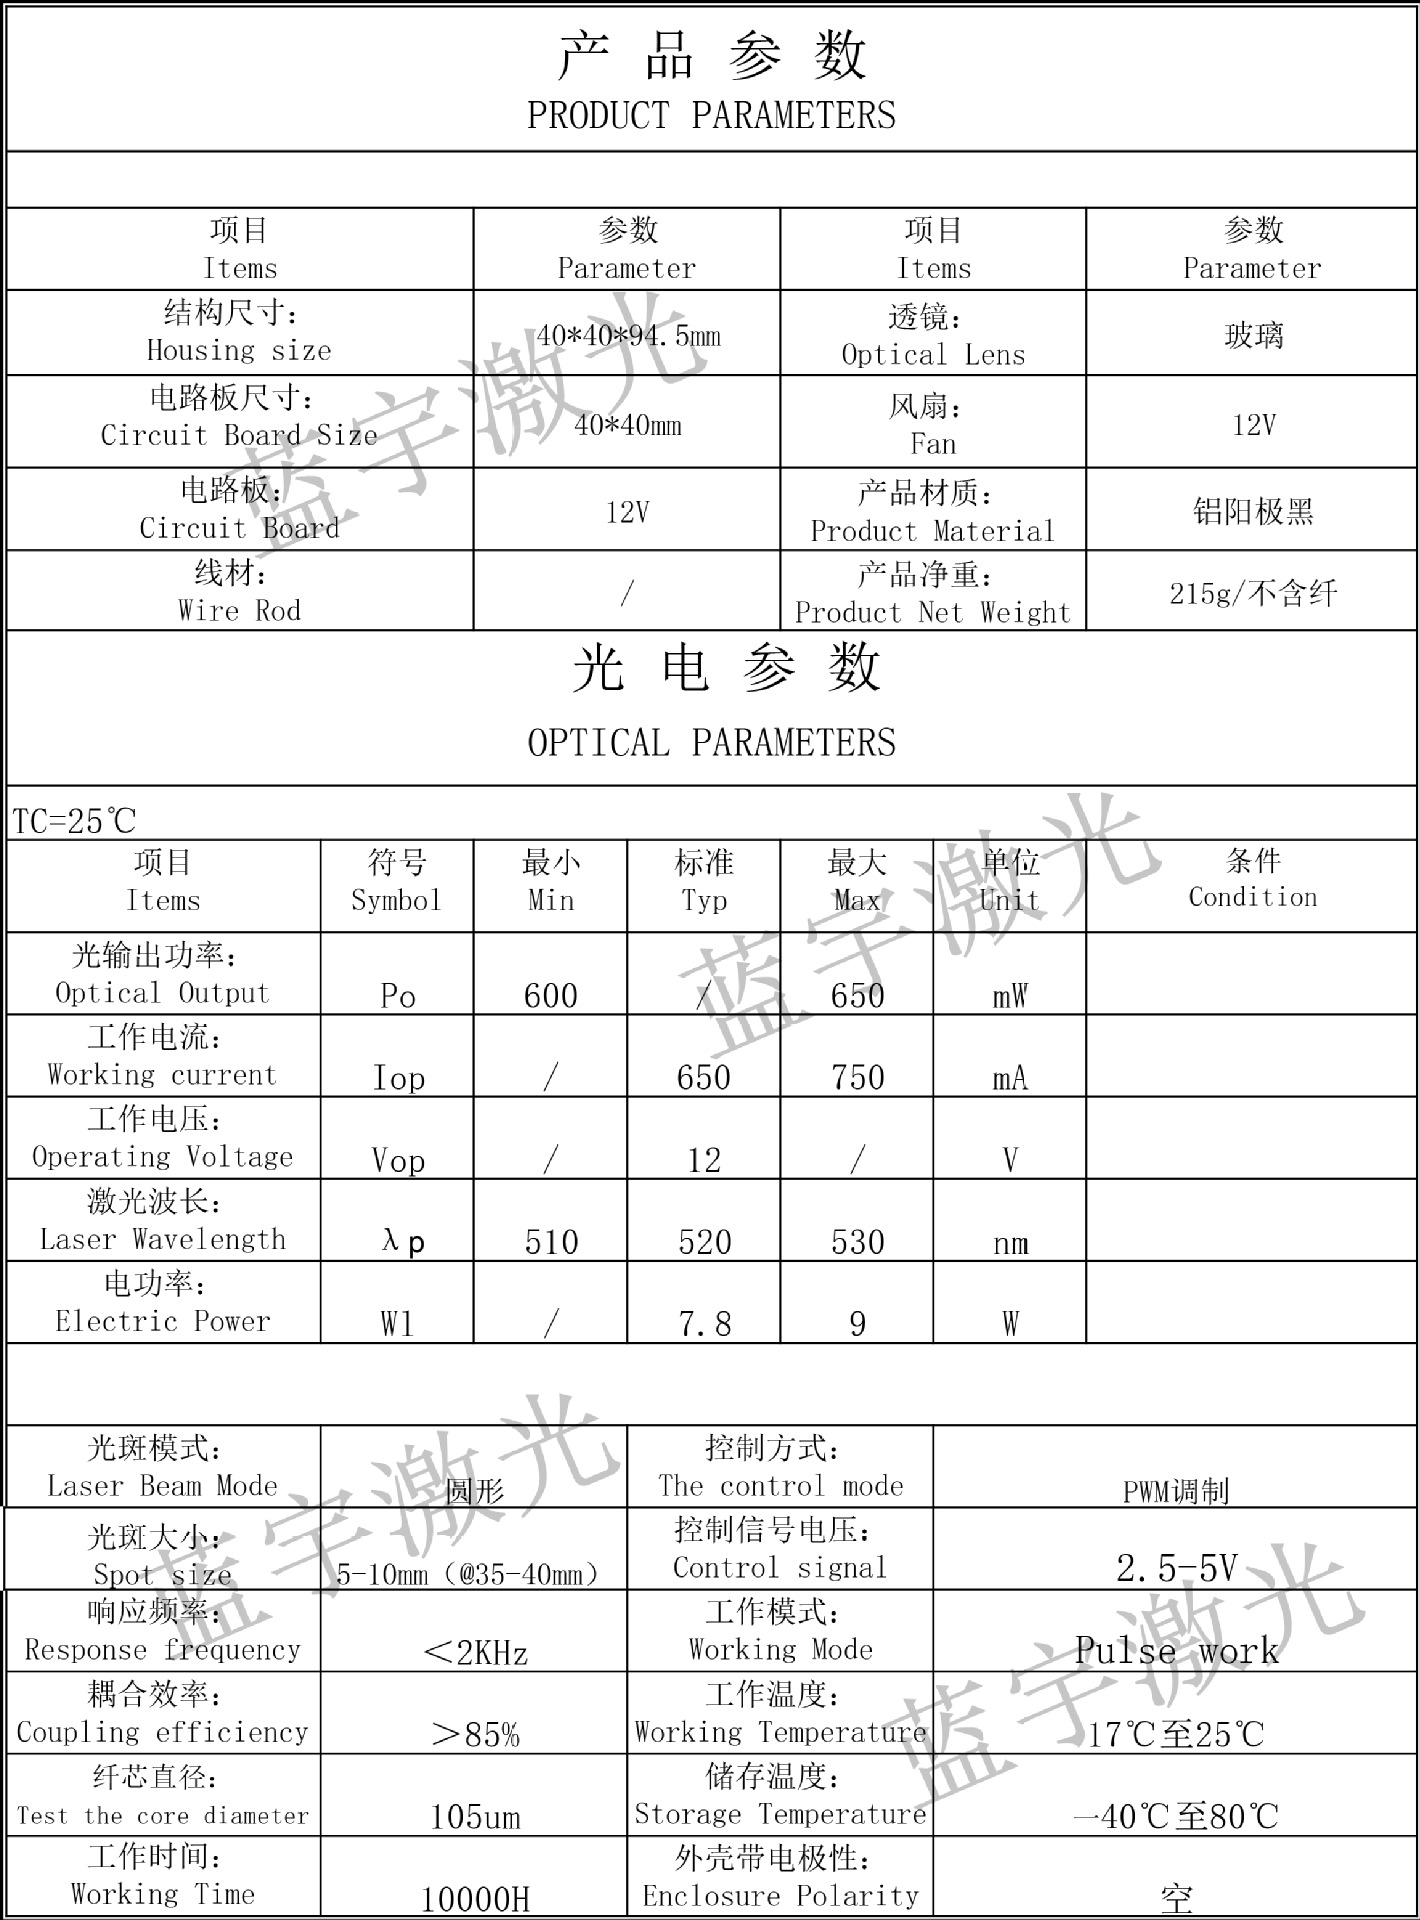 产 品 参 数
PRODUCT PARAMETERS
项目 参数 项目 参数
Items Parameter Items Parameter
结构尺寸： 透镜：
Housing size 40*40*94.5mm Optical Lens 玻璃
电路板尺寸： 风扇：
Circuit Board Size 40*40mm Fan 12V
电路板： 产品材质：
Circuit Board 12V Product Material 铝阳极黑
线材： 产品净重：
Wire Rod / Product Net Weight 215g/不含纤
光 电 参 数
OPTICAL PARAMETERS
TC=25℃
项目 符号 最小 标准 最大 单位 条件
Items Symbol Min Typ Max Unit Condition
光输出功率：
Optical Output Po 600 / 650 mW
工作电流：
Working current Iop / 650 750 mA
工作电压：
Operating Voltage Vop / 12 / V
激光波长：
Laser Wavelength λp 510 520 530 nm
电功率：
Electric Power Wl / 7.8 9 W
光斑模式： 控制方式：
Laser Beam Mode 圆形 The control mode PWM调制
光斑大小： 控制信号电压：
Spot size 5-10mm（@35-40mm） Control signal 2.5-5V
响应频率： 工作模式：
Response frequency ＜2KHz Working Mode Pulse work
耦合效率： 工作温度：
Coupling efficiency ＞85% Working Temperature 17℃至25℃
纤芯直径： 储存温度：
Test the core diameter 105um Storage Temperature —40℃至80℃
工作时间： 外壳带电极性：
Working Time 10000H Enclosure Polarity 空
蓝宇激光
蓝宇激光
蓝宇激光
蓝宇激光